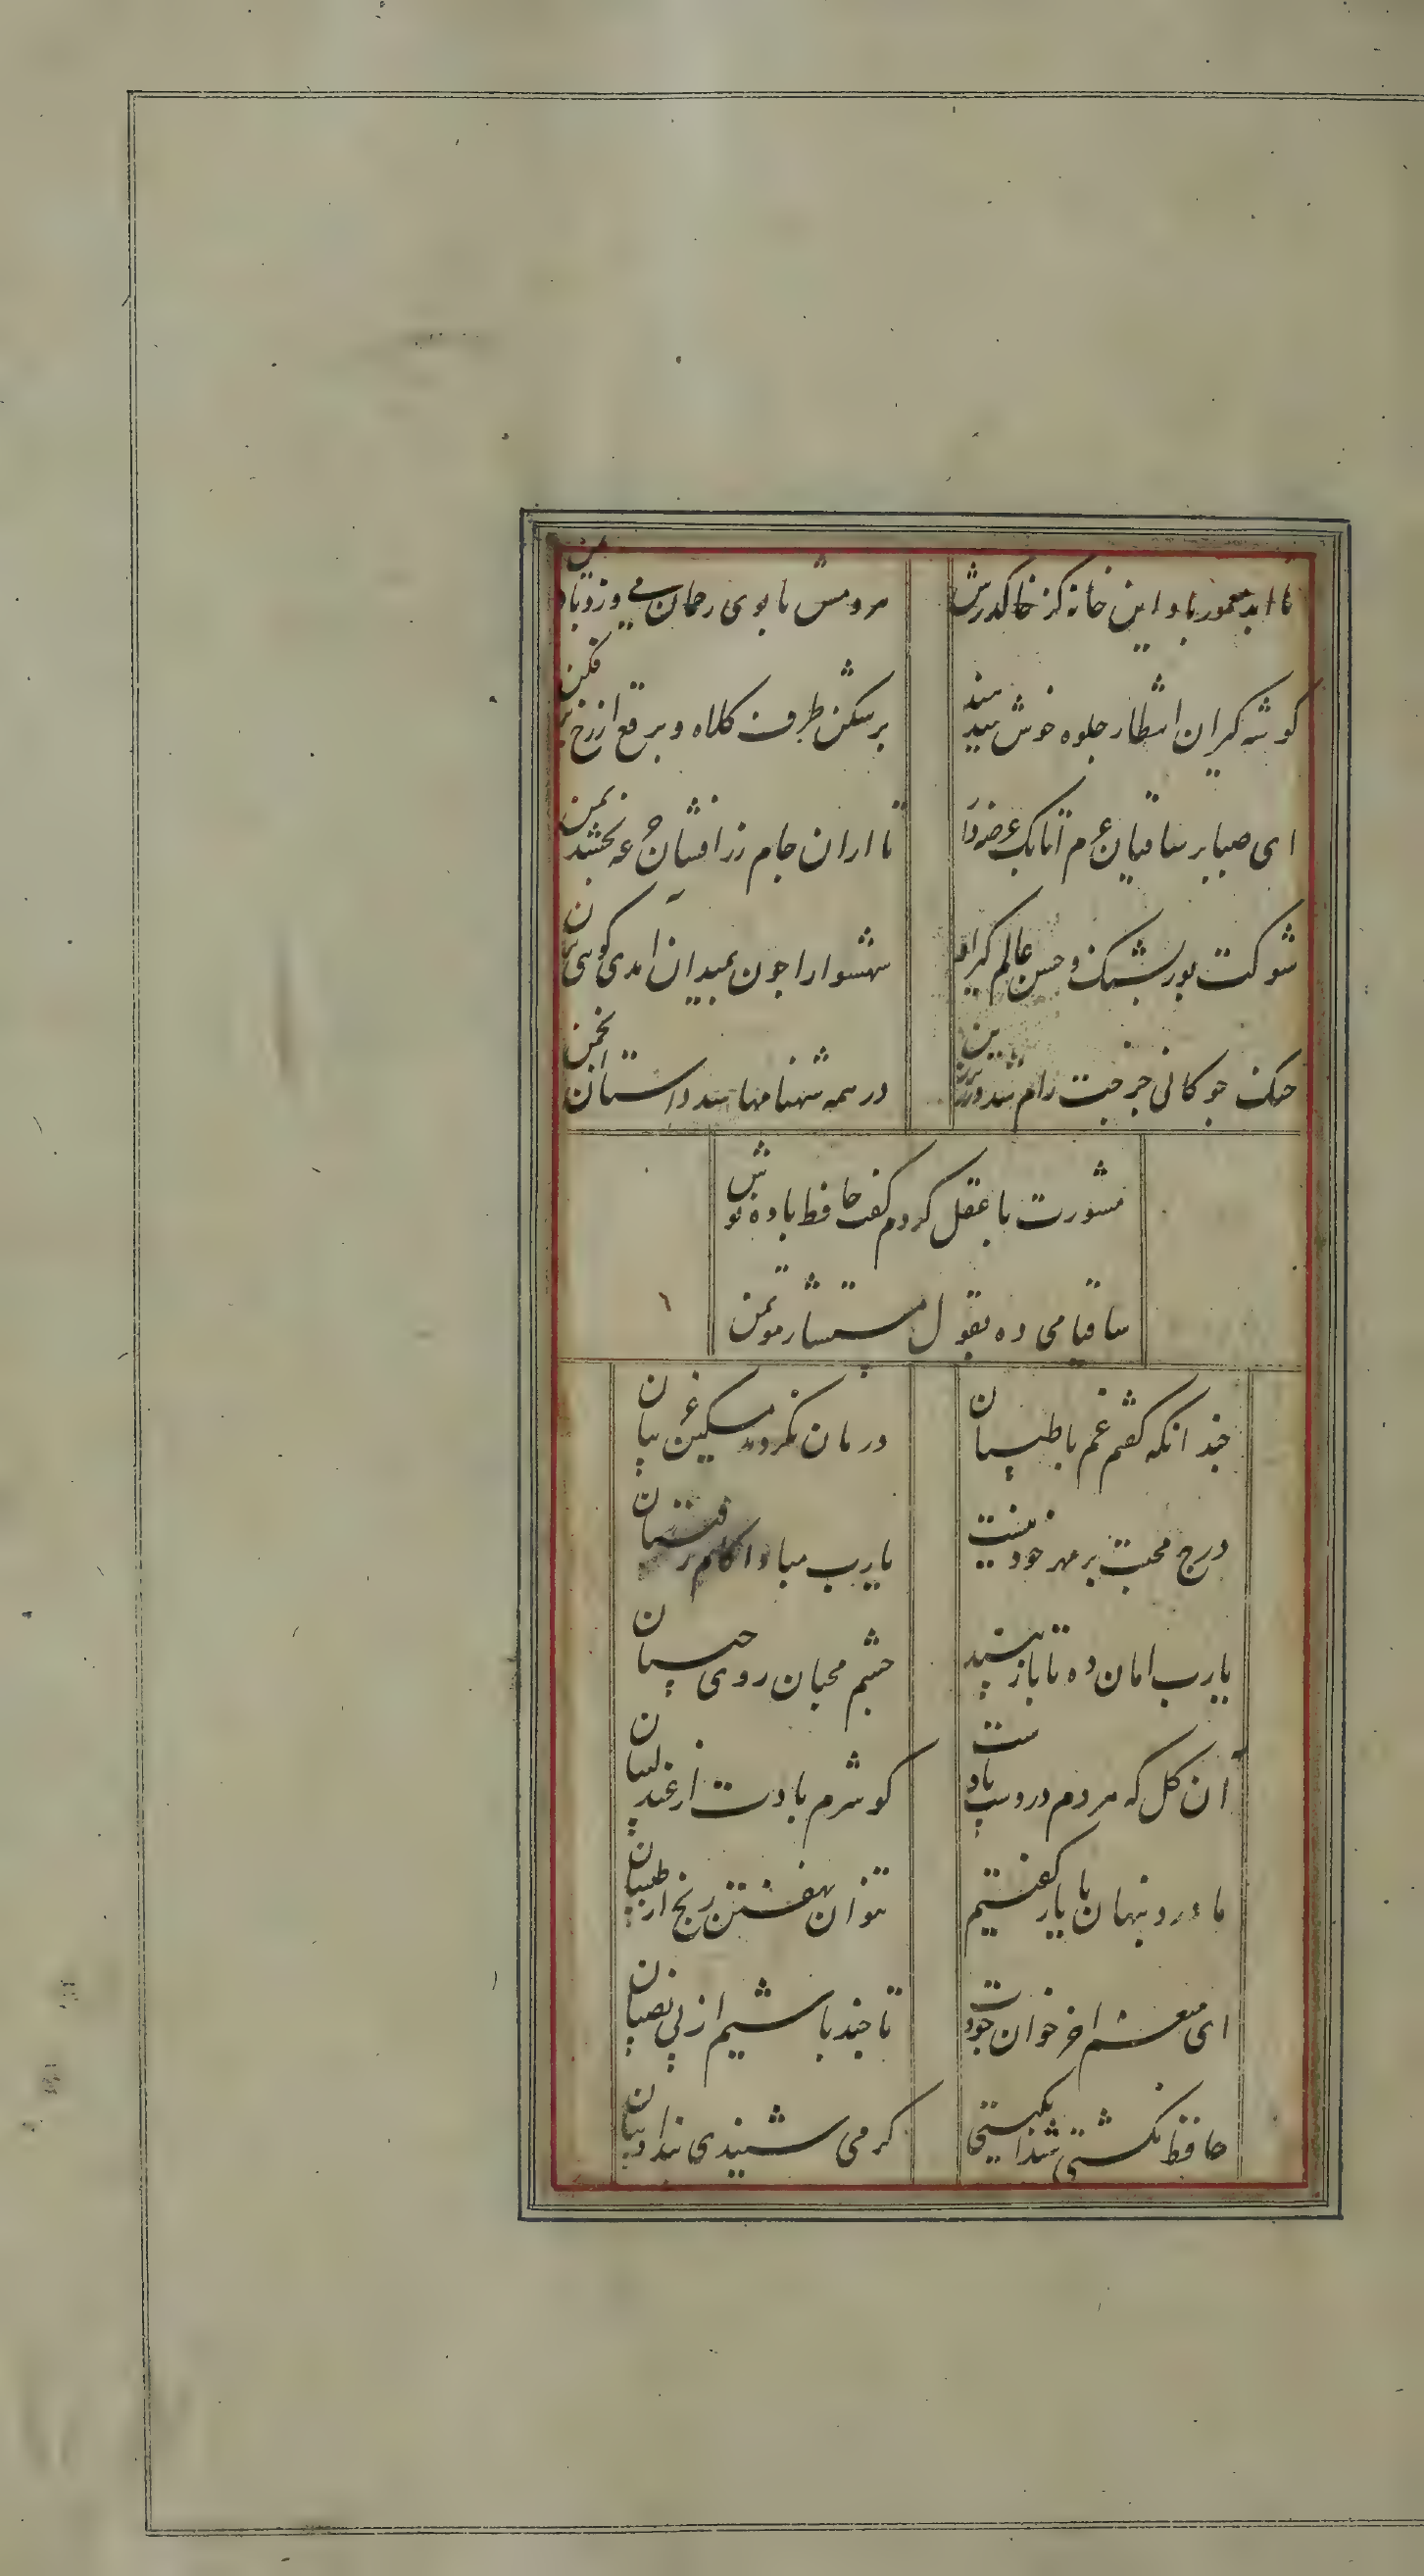 تا ابد معمور باد این خانه کز خاک درش
هر دمش با بوی رحمان می وزد باد یمن
گوشه گیران انتظار جلوه خوش میکنند
برشکن طرف کلاه و برقع از رخ برفکن
ای صبا بر ساقی بزم اتابک عرضه دار
تا از ان جام زرافشان جرعه بخشد بمن
شوکت پور پشنگ و حسن عالم گیر او
شهسوارا چون بمیدان امدی گویی بزن
خنک چوکانی چرخت رام شد در زیر زین
در همه شهنامها شد داستان انجمن
مشورت با عقل کردم گفت حافظ باده نوش
ساقیا می ده بقول مستشار موتمن
چندانکه گفتم غم با طبیبان
درمان نکردند مسکین غریبان
درج محبت بر مهر خود نیست
یارب مبادا کام رقیبان
یارب امان ده تا باز بیند
چشم محبان روی حبیبان
آن گل که هر دم در دست بادیست
گو شرم بادت از عندلیبان
ما درد پنهان با یار گفتیم
نتوان نهفتن رنج از طبیبان
ای منعم اخر خوان جودت
تا چند باشیم از بی نصیبان
حافظ نگشتی شیدای گیتی
گر می شنیدی پند ادیبان